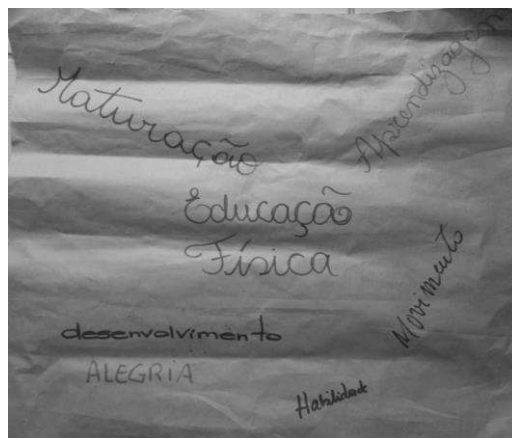 Maturação
Aprendizagem
Educação
Física
Movimento
desenvolvimento
ALEGRIA
Habilidade